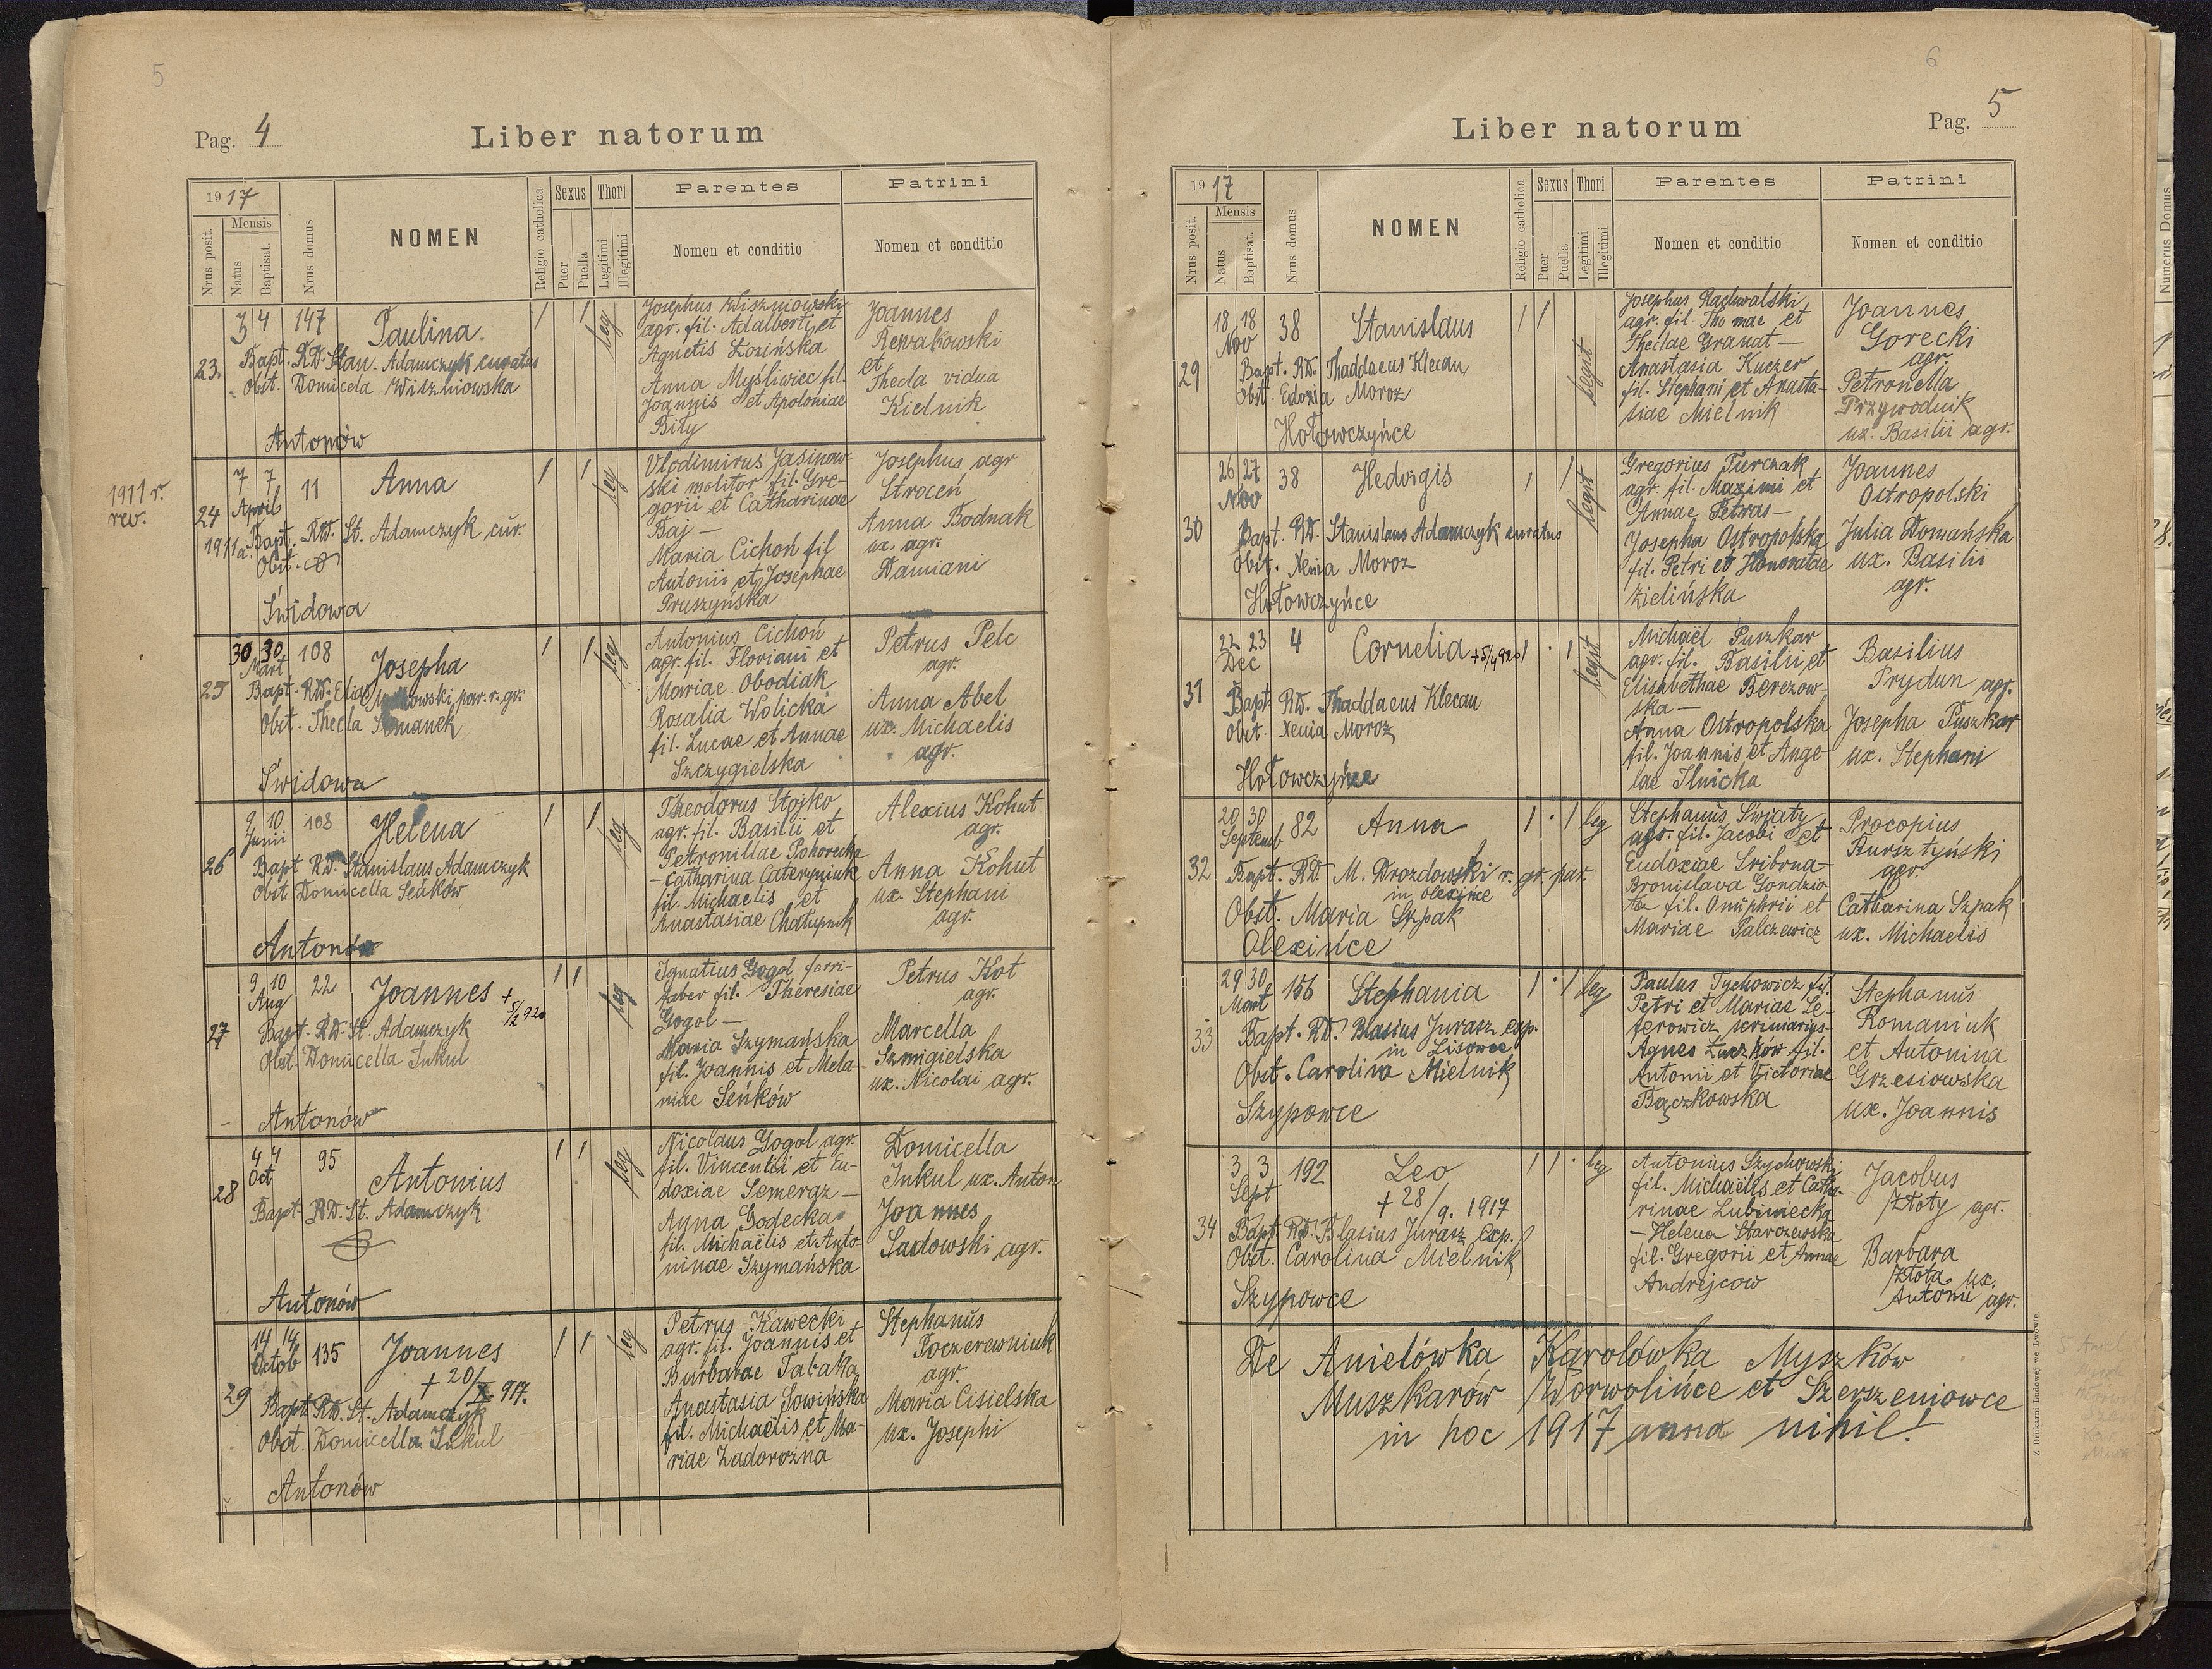 5
Pag. 4
Liber natorum
1917
Nrus posit.
Mensis
Natus
Baptisat.
Nrus domus
NOMEN
Religio catholica
Sexus
Puer
Puella
Thori
Legitimi
Illegitimi
Parentes
Nomen et conditio
Patrini
Nomen et conditio
23.
3 4
147
Paulina.
Bapt. RD. Stan. Adamczyk curatus
Obst. Domicela Wiszniowska
Antonów
1 1
leg
Josephus Wiszniowski
agr. fil. Adalberti et
Agnetis Łozińska
Anna Myśliwiec fil.
Joannis et Apoloniae
Biły
Joannes
Rewakowski
et
Thecla vidua
Kielnik
1911 r.
rev.
24
1911 a.
7 7
April
11
Anna
Bapt. RD. St. Adamczyk cur.
Obst.
Świdowa
1 1
leg
Vlodimirus Jasinow-
ski molitor fil. Gre-
gorii et Catharinae
Baj —
Maria Cichoń fil
Antonii et Josephae
Pruszyńska
Josephus agr
Stroceń
Anna Bodnak
ux. agr.
Damiani
25
30 30
Mart
108
Josepha
Bapt. RD. Elias par. r. gr.
Obst. Thecla
Świdowa
1 1
leg
Antonius Cichoń
agr. fil. Floriani et
Mariae Obodiak
Rozalia Wolicka
fil. Lucae et Annae
Szczygielska
Petrus Pelc
agr.
Anna Abel
ux. Michaelis
agr.
26
9 10
Junii
108
Helena
Bapt RD. Stanislaus Adamczyk
Obst. Domicella Seńków
Antonów
1 1
leg
Theodorus Stojko
agr. fil. Basilii et
Petronillae Pohorecka
— Catharina Cateryniuk
fil. Michaelis et
Anastasiae Chałupnik
Alexius Kohut
agr.
Anna Kohut
ux. Stephani
agr.
27
9 10
Aug
22
Joannes +
5/2 920
Bapt. RD. St. Adamczyk
Obst. Domicella Inkul
Antonów
1 1
leg
Ignatius Gogol ferri-
faber fil. Theresiae
Gogol —
Maria Szymańska
fil. Joannis et Mela-
niae Seńków
Petrus Kot
agr.
Marcella
Szmigielska
ux. Nicolai agr.
28
4 4
Oct
95
Antonius
Bapt. RD. St. Adamczyk
Antonów
1 1
leg
Nicolaus Gogol agr.
fil. Vincentii et Eu-
doxiae Semeraz —
Anna Godecka
fil. Michaëlis et Anto-
ninae Szymańska
Domicella
Inkul ux. Anton
Joannes
Sadowski agr.
29
14 14
Octob
135
Joannes
+ 20/X 917.
Bapt. RD. St. Adamczyk
Obst. Domicella Inkul
Antonów
1 1
leg
Petrus Kawecki
agr. fil. Joannis et
Barbarae Tabaka
Anastasia Sowińska
fil. Michaëlis et Ma-
riae Zadorożna
Stephanus
Poczerewniuk
agr.
Maria Cisielska
ux. Josephi
6
Liber natorum
Pag. 5
1917
Nrus posit.
Mensis
Natus
Baptisat.
Nrus domus
NOMEN
Religio catholica
Sexus
Puer
Puella
Thori
Legitimi
Illegitimi
Parentes
Nomen et conditio
Patrini
Nomen et conditio
29
18 18
Nov
38
Stanislaus
Bapt. RD. Thaddaeus Klecan
Obst. Moroz
Hołowczyńce
1 1
legit
Josephus Rachwalski
agr. fil. Thomae et
Theclae Granat —
Anastasia Kuczer
fil. Stephani et Anasta-
siae Mielnik
Joannes
Gorecki
agr.
Petronella
Przywodnik
ux. Basilii agr.
30
26 27
Nov
38
Hedvigis
Bapt. RD. Stanislaus Adamczyk curatus
Obst. Xenia Moroz
Hołowczyńce
1 1
legit
Gregorius Turczak
agr. fil. Maximi et
Annae Petras —
Josepha Ostropolska
fil. Petri et Honoratae
Zielińska
Joannes
Ostropolski
Julia Domańska
ux. Basilii
agr.
31
22 23
Dec
4
Cornelia +5/4 920
Bapt RD. Thaddaeus Klecan
Obst. Xenia Moroz
Hołowczyńce
1 1
legit
Michaël Puszkar
agr. fil. Basilii et
Elisabethae Berezow
ska —
Anna Ostropolska
fil. Joannis et Ange-
lae Ilnicka
Basilius
Prydun agr.
Josepha Puszkar
ux. Stephani
32
20 30
Septemb
82
Anna
Bapt. RD. M. Drozdowski r. gr. par.
in Olexińce
Obst. Maria Szpak
Olexińce
1 1
leg
Stephanus Światy
agr. fil. Jacobi et
Eudoxiae Sribrna —
Bronislava Gondzio-
fil. Onuphrii et
Mariae Palczewicz
Procopius
Bursztyński
agr.
Catharina Szpak
ux. Michaelis
33
29 30
Mart
156
Stephania
Bapt. RD. Blasius Jurasz exp.
in Lisowce
Obst. Carolina Mielnik
Szypowce
1 1
leg
Paulus Tychowicz fil.
Petri et Mariae Le-
ferowicz
Agnes Łuczków fil.
Antonii et Victoriae
Bączkowska
Stephanus
Romaniuk
et Antonina
Grzesiowska
ux. Joannis
34
3 3
Sept
192
Leo
+ 28/9. 1917
Bapt. RD. Blasius Jurasz exp.
Obst. Carolina Mielnik
Szypowce
1 1
leg
Antonius Szychowski
fil. Michaëlis et Catha-
rinae Lubiniecka
— Helena Starczewska
fil. Gregorii et Annae
Andrejcow
Jacobus
Złoty agr.
Barbara
Złota ux.
Antonii agr.
De Anielówka Karolówka Myszków
Muszkarów Worwolińce et Szerszeniowce
in hoc 1917 anna nihil!
Z Drukarni Ludowej we Lwowie.
Numerus Domus